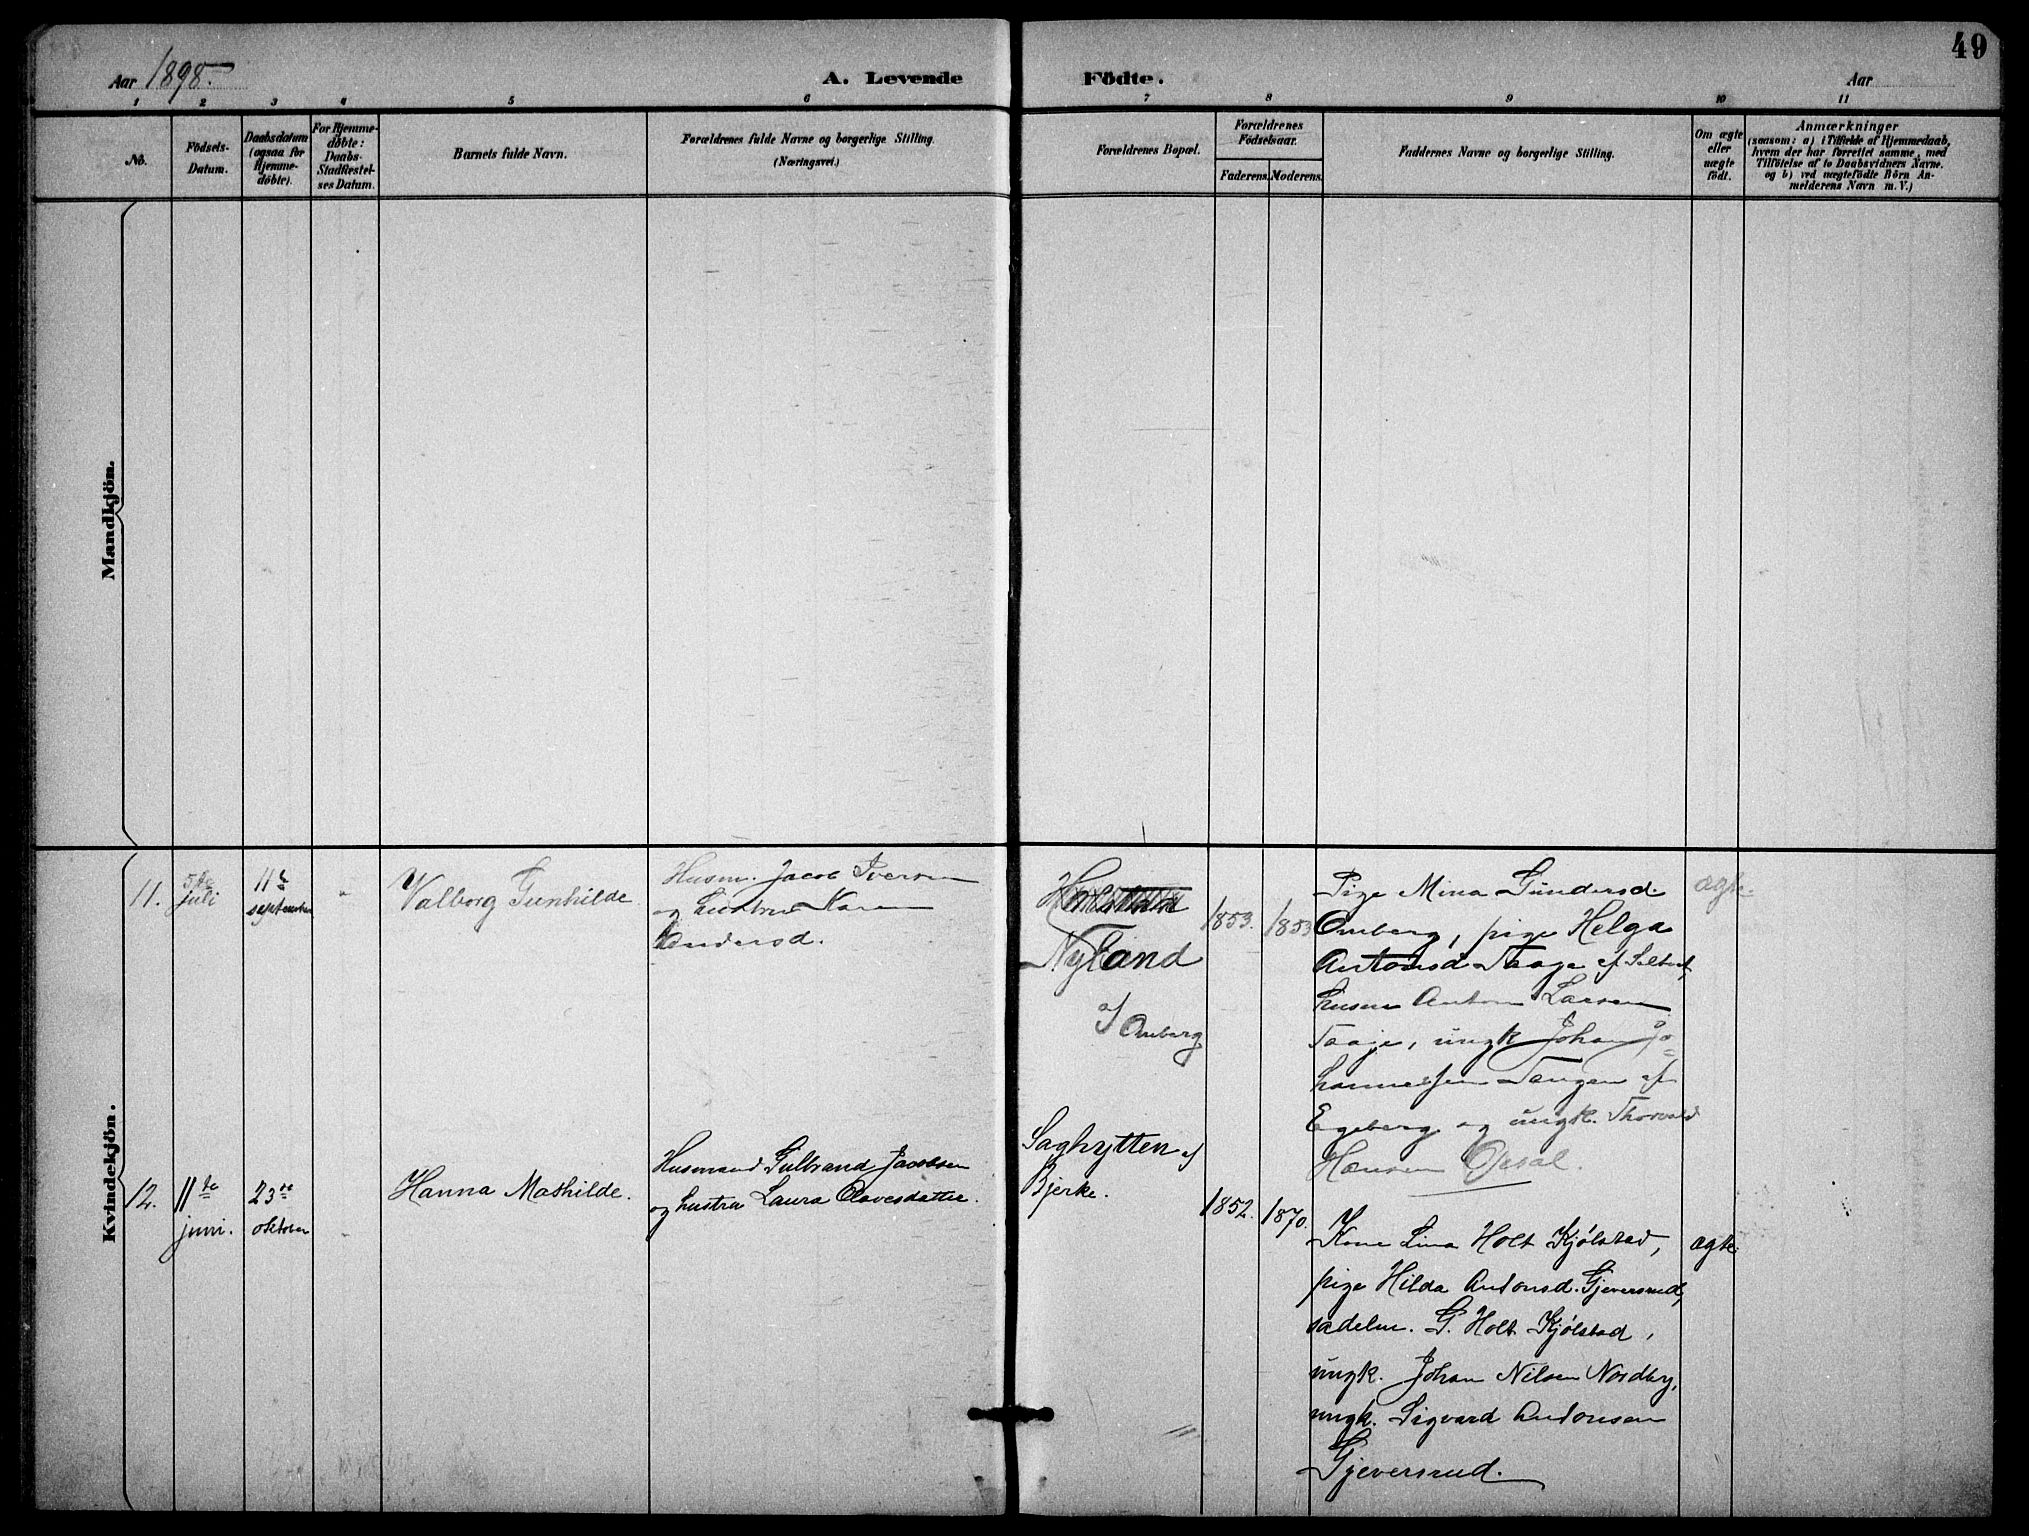 49
Aar 1898.
A. Levende
Födte.
Aar
1 2 3 4 5 6 7 8 9 10 11
No.
Födsels-
Datum.
Daabsdatum
(ogsaa for
Hjemme-
döbte).
For Hjemme-
döbte:
Daabs-
Stadfæstel-
ses Datum.
Barnets fulde Navn.
Forældrenes fulde Navne og borgerlige Stilling.
(Næringsvei.)
Forældrenes Bopæl.
Forældrenes
Födselsaar.
Faderens. Moderens.
Faddernes Navne og borgerlige Stilling.
Om ægte
eller
uægte
födt.
Anmærkninger
(saasom: a) i Tilfælde af Hjemmedaab,
hvem der har forrettet samme, med
Tilföielse af to Daabsvidners Navne.
og b) ved uægtefödte Börn An-
melderens Navn m. V.)
Mandkjön.
Kvindekjön.
11.
5te
juli
11te
september
Valborg Gunhilde
Husm. Jacob Iversen
og hustru Karen
Andersd.
Nyland
af Omberg
1853.
1853
Pige Mina Gundersd.
Omberg, pige Helga
Antonsd Taaje af
husm Anton Larsen
Taaje, ungk Johan Jo=
hannessen Tangen af
Egeberg og ungk. Thorvald
Hansen
ægte.
12.
11te
juni.
23de
oktober
Hanna Mathilde.
Husmand Gulbrand Jacobsen
og hustru Laura Olavesdatter.
Saghytten af
Bjerke.
1852.
1870.
Kone Lina Holt Kjølstad,
pige Hilda Antonsd. Gjeversrud,
sadelm. G. Holt Kjølstad,
ungk. Johan Nilsen Nordby,
ungk. Sigvard Antonsen
Gjeversrud.
ægte